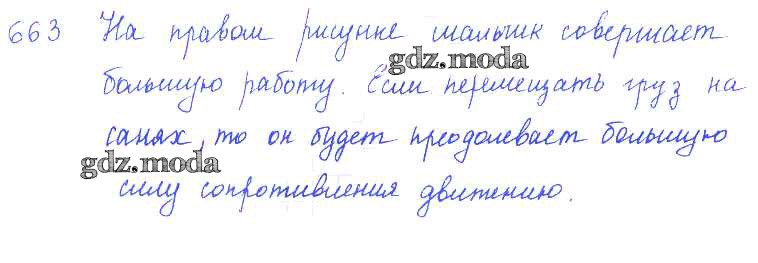 663 На правом рисунке мальчик совершает
gdz.moda
большую работу. Если перемещать груз на
санях, то он будет преодолевает большую
gdz.moda
силу сопротивления движению.